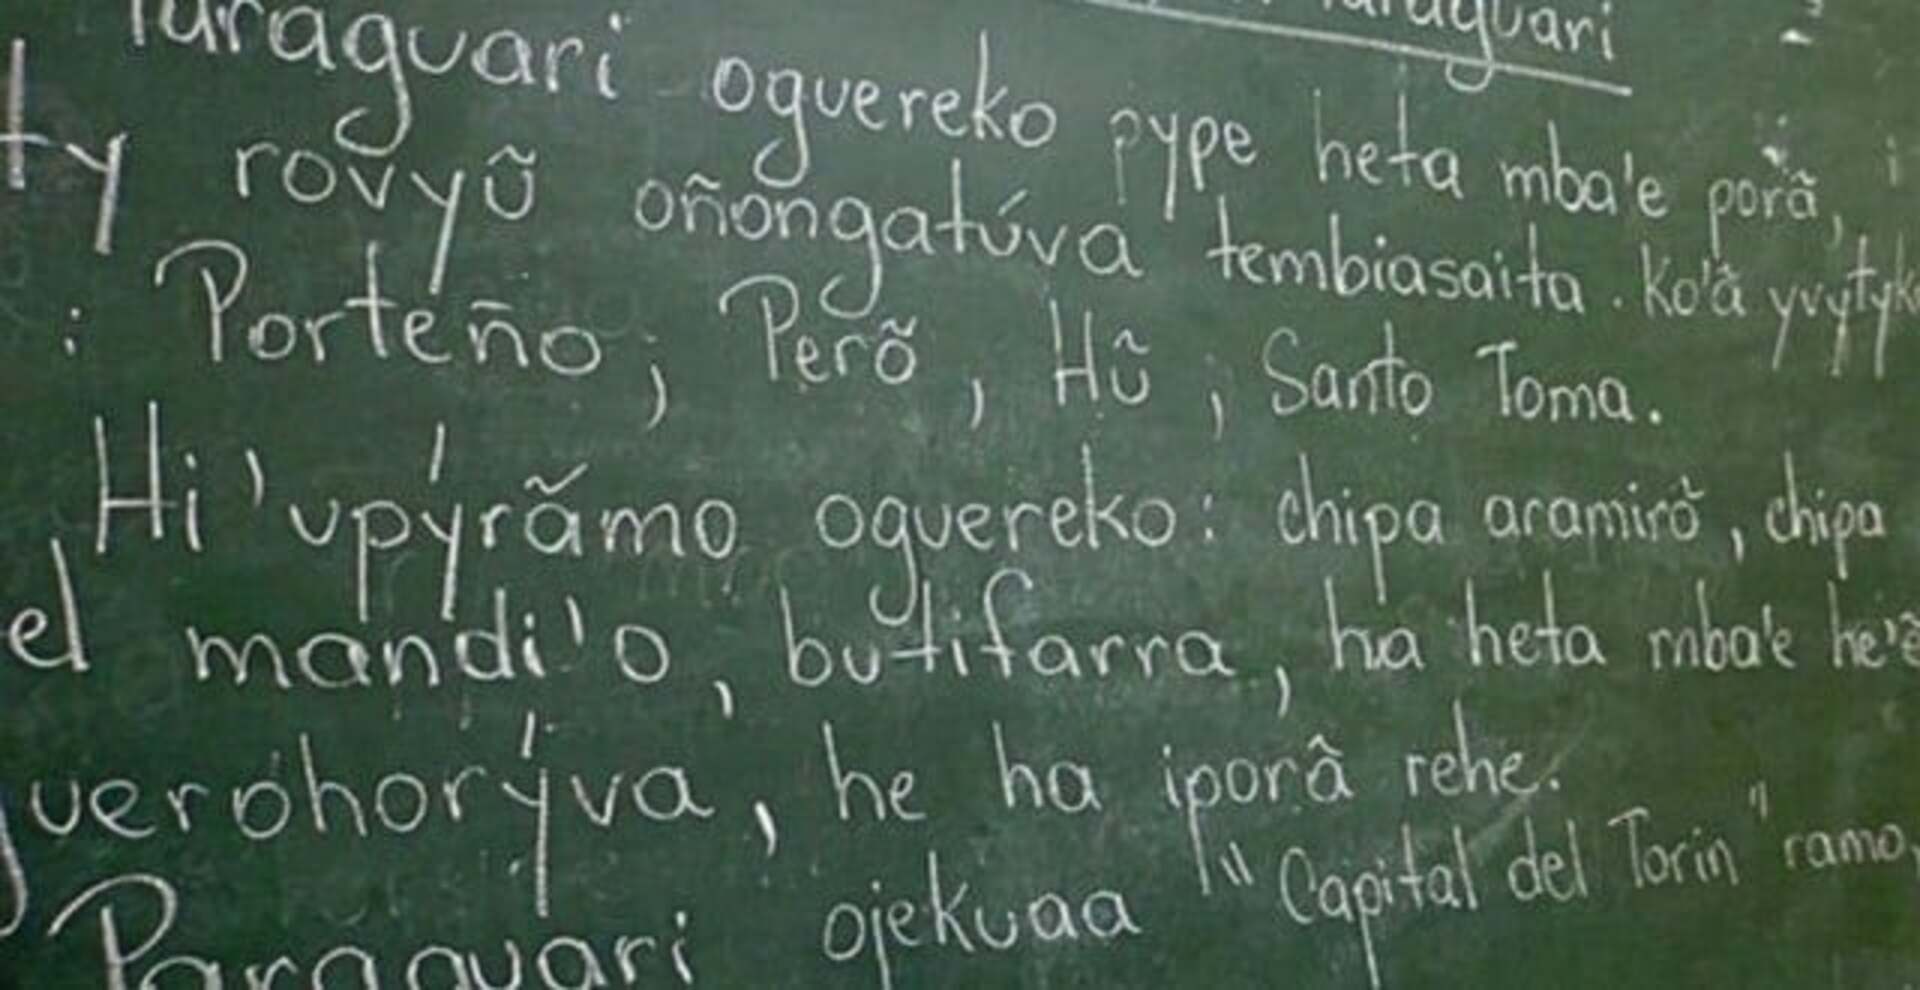 Paraguari
Paraguari oguereko pype heta mba'e porã,
ty rovyũ oñongatúva tembiasaita. Ko'ã yvytyk
: Porteño, Perõ, Hũ, Santo Toma.
Hi'upýrãmo oguereko: chipa aramirõ, chipa
el mandi'o, butifarra, ha heta mba'e he'ẽ
guerohorýva, he ha iporâ rehe.
Paraguari ojekuaa "Capital del Torin" ramo,